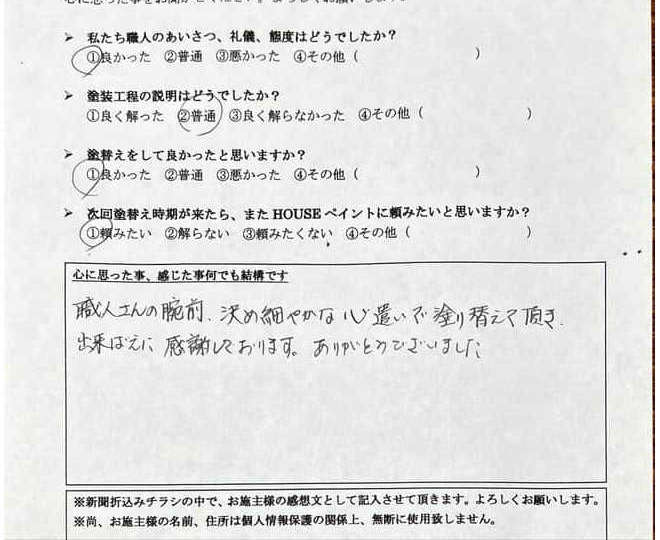 ➢ 私たち職人のあいさつ、礼儀、態度はどうでしたか？
①良かった ②普通 ③悪かった ④その他（ ）
➢ 塗装工程の説明はどうでしたか？
①良く解った ②普通 ③良く解らなかった ④その他（ ）
➢ 塗替えをして良かったと思いますか？
①良かった ②普通 ③悪かった ④その他（ ）
➢ 次回塗替え時期が来たら、また HOUSE ペイントに頼みたいと思いますか？
①頼みたい ②解らない ③頼みたくない ④その他（ ）
心に思った事、感じた事何でも結構です
職人さんの腕前、決め細やかな心遣いで塗り替えて頂き、
出来ばえに感謝しております。ありがとうございました
※新聞折込みチラシの中で、お施主様の感想文として記入させて頂きます。よろしくお願いします。
※尚、お施主様の名前、住所は個人情報保護の関係上、無断に使用致しません。